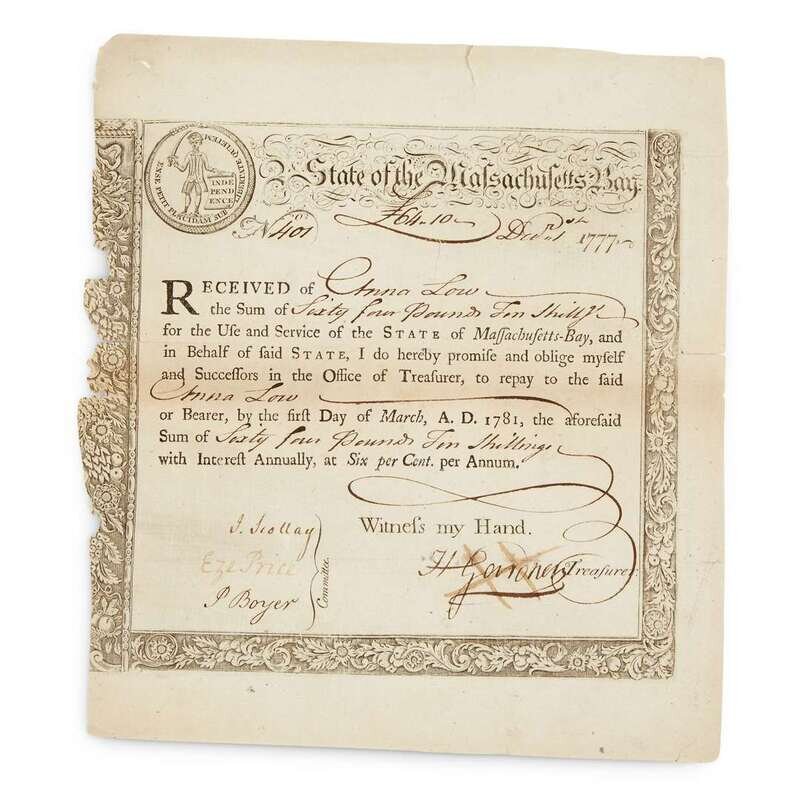 ENSE PETIT PLACIDAM SUB LIBERTATE QUIETEM
INDE
PEND
ENCE
State of the Maſsachuſetts Bay.
No. 401 £64..10 Decr. 1st. 1777
RECEIVED of Anna Low
the Sum of Sixty four Pounds Ten Shillgs
for the Uſe and Service of the STATE of Maſſachuſetts-Bay, and
in Behalf of ſaid STATE, I do hereby promiſe and oblige myſelf
and Succeſſors in the Office of Treaſurer, to repay to the ſaid
Anna Low
or Bearer, by the firſt Day of March, A. D. 1781, the aforeſaid
Sum of Sixty four Pounds Ten Shillings
with Intereſt Annually, at Six per Cent. per Annum.
Witneſs my Hand.
J. Scollay
Eze. Price
P Boyer
Committee.
H Gardner Treaſurer